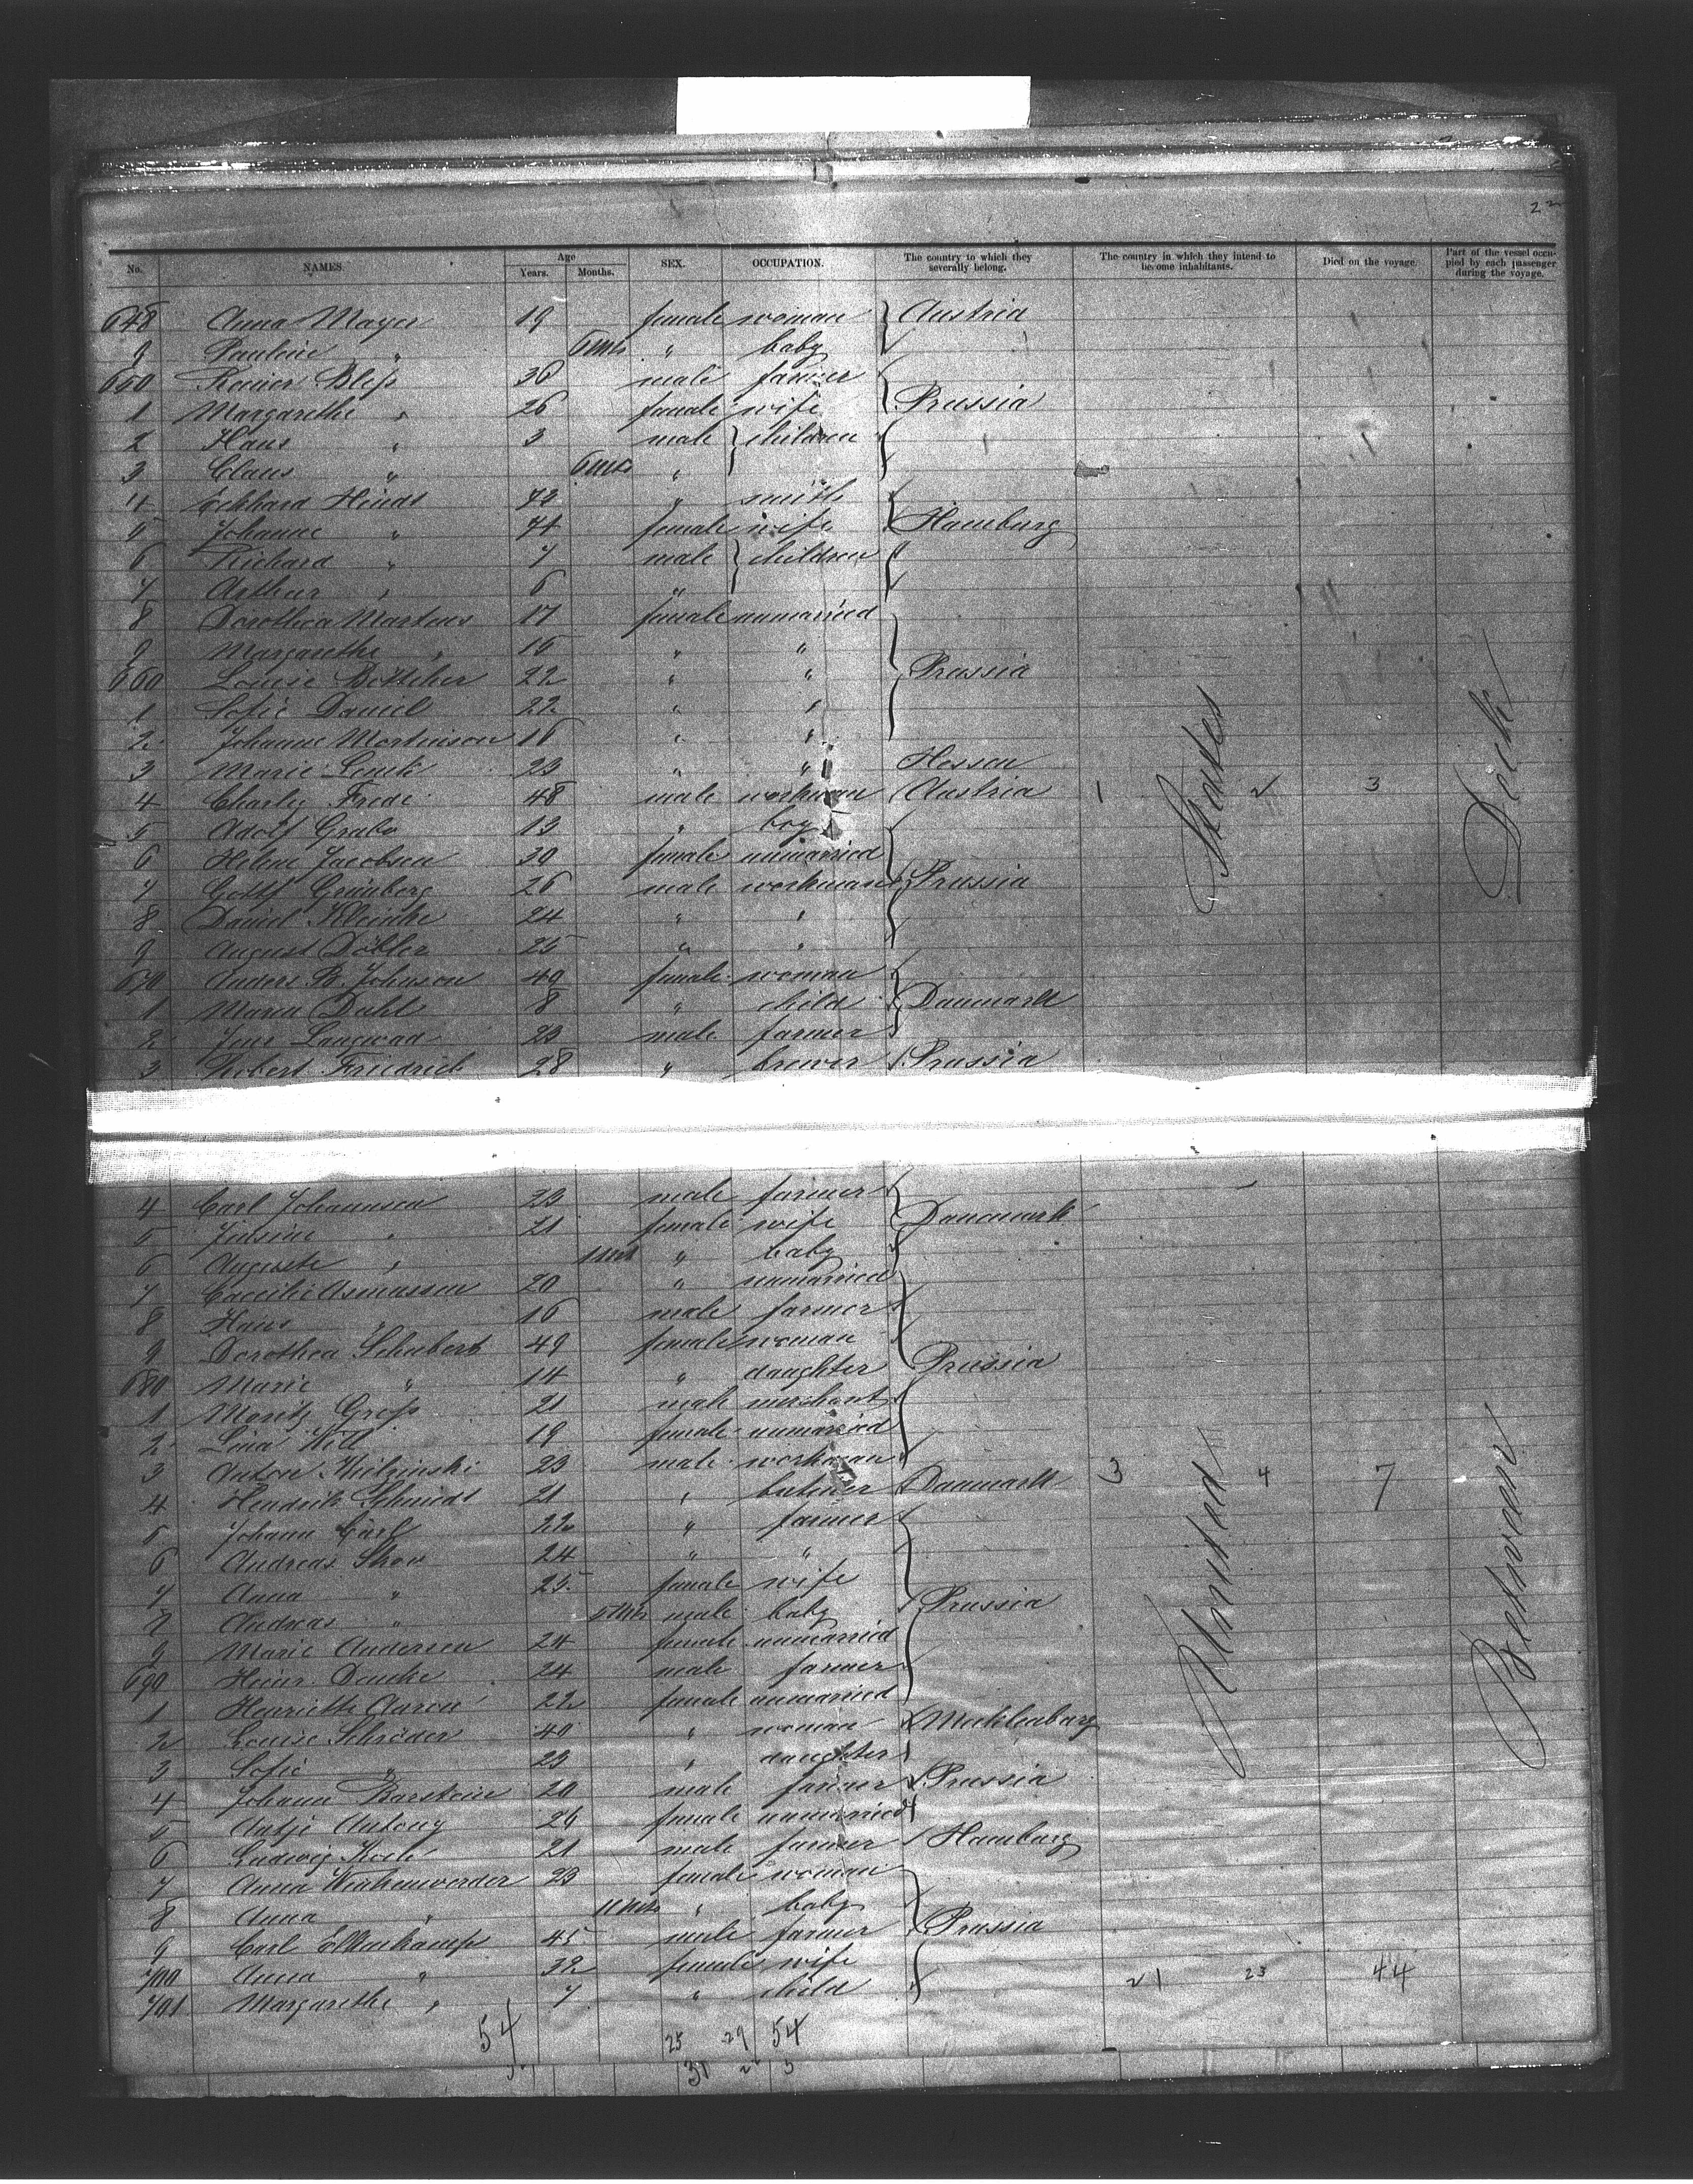 22
No. NAMES. Age Years. Months. SEX. OCCUPATION. The country to which they severally belong. The country in which they intend to become inhabitants. Died on the voyage. Part of the vessel occupied by each passenger during the voyage.
648 Anna Mayer 19 female woman Austria
9 Pauline " 6 Mts " baby
650 Reiner Bleſs 36 male farmer
1 Margarethe " 26 female wife Prussia
2 Hans " 3 male children
3 Claus " 6 Mts "
4 Eckhard Hindt " smith
5 Johanne " female wife Hamburg
6 Richard " 7 male children
7 Arthur " 6 "
8 Dorothea Martens 17 female unmarried
9 Margarethe " 15 " "
660 Louise Böttcher 22 " " Prussia
1 Sofie Daniel 22 " "
2 Johanne Mortinson 16 " "
3 Marie 23 " " Hessen
4 Charley Frede 48 male workman Austria 1 States 2 3
5 Adolf Grabo 13 " boy
6 Helene Jacobsen 30 female unmarried
7 Gottf Grünberg 26 male workman Prussia
8 Daniel Kleinke 24 " "
9 August Döbler 25 " "
670 Anders B. Johnson 49 female woman
1 Maria Dahl 8 " child Danmark
2 Jens 23 male farmer
3 Friedrich 28 " brewer Prussia
4 Carl Johannsen 23 male farmer
5 Julsine " 21 female wife Danmark
6 Auguste " 1 Mts " baby
7 Caecilie Asmussen 20 " unmarried
8 Hans " 16 male farmer
9 Dorothea Schubert 49 female woman
680 Marie " 14 " daughter Prussia
1 Moritz Groſs 21 male merchant
2 Lina Will 19 female unmarried
3 Anton 23 male workman
4 Hendrik Schmidt 21 " Danmark 3 United 4 7
5 Johann Carl 22 " farmer
6 Andreas 24 " "
7 Anna " 25 female wife
8 Andreas " 5 Mts male baby Prussia
9 Marie Andersen 24 female unmarried
690 Heinr. Dencke 24 male farmer
1 Henriette Aaron 22 female unmarried
2 Louise Schröder 40 " woman Mecklenburg
3 Sofie " 23 " daughter
4 Johann Barstein 20 male farmer Prussia
5 Antje Antony 26 female unmarried
6 Ludwig Koch 21 male farmer Hamburg
7 Anna Werkenwerder 23 female woman
8 Anna " 11 Mts " baby
9 Carl Elkenkamp 45 male farmer Prussia
700 Anna " 32 female wife
701 Margarethe " 7 " child 21 23 44
Between
Deck
54 25 29 54
31 3